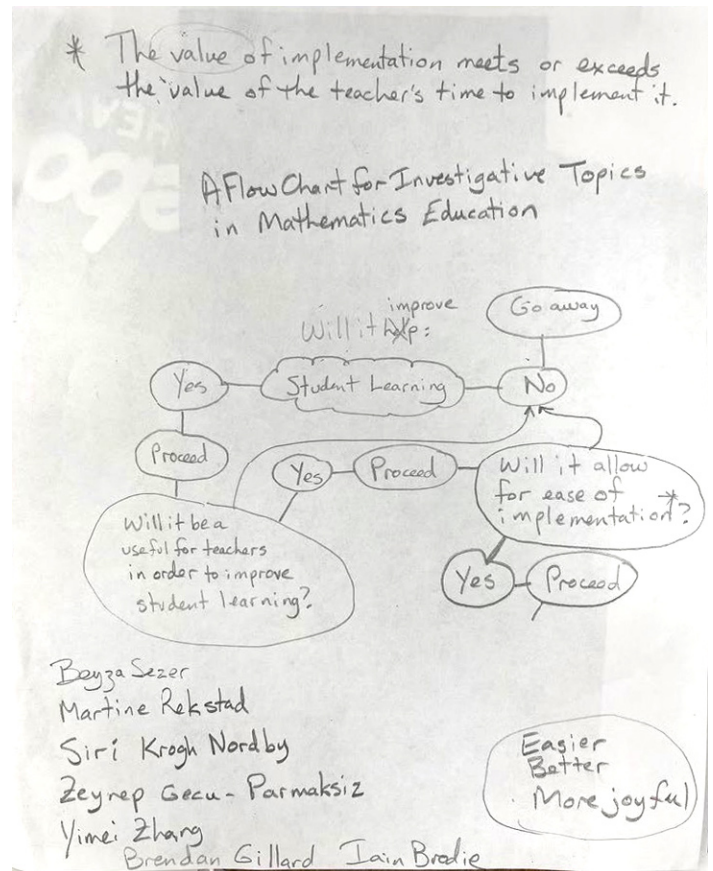 * The value of implementation meets or exceeds
the value of the teacher's time to implement it.
A Flow Chart for Investigative Topics
in Mathematics Education
improve
Will it help:
Go away
Yes
Student Learning
No
Proceed
Yes
Proceed
Will it allow
for ease of *
implementation?
Will it be a
useful for teachers
in order to improve
student learning?
Yes
Proceed
Beyza Sezer
Martine Rekstad
Siri Krogh Nordby
Zeynep Gecu-Parmaksiz
Yimei Zhang
Brendan Gillard Iain Brodie
Easier
Better
More joyful